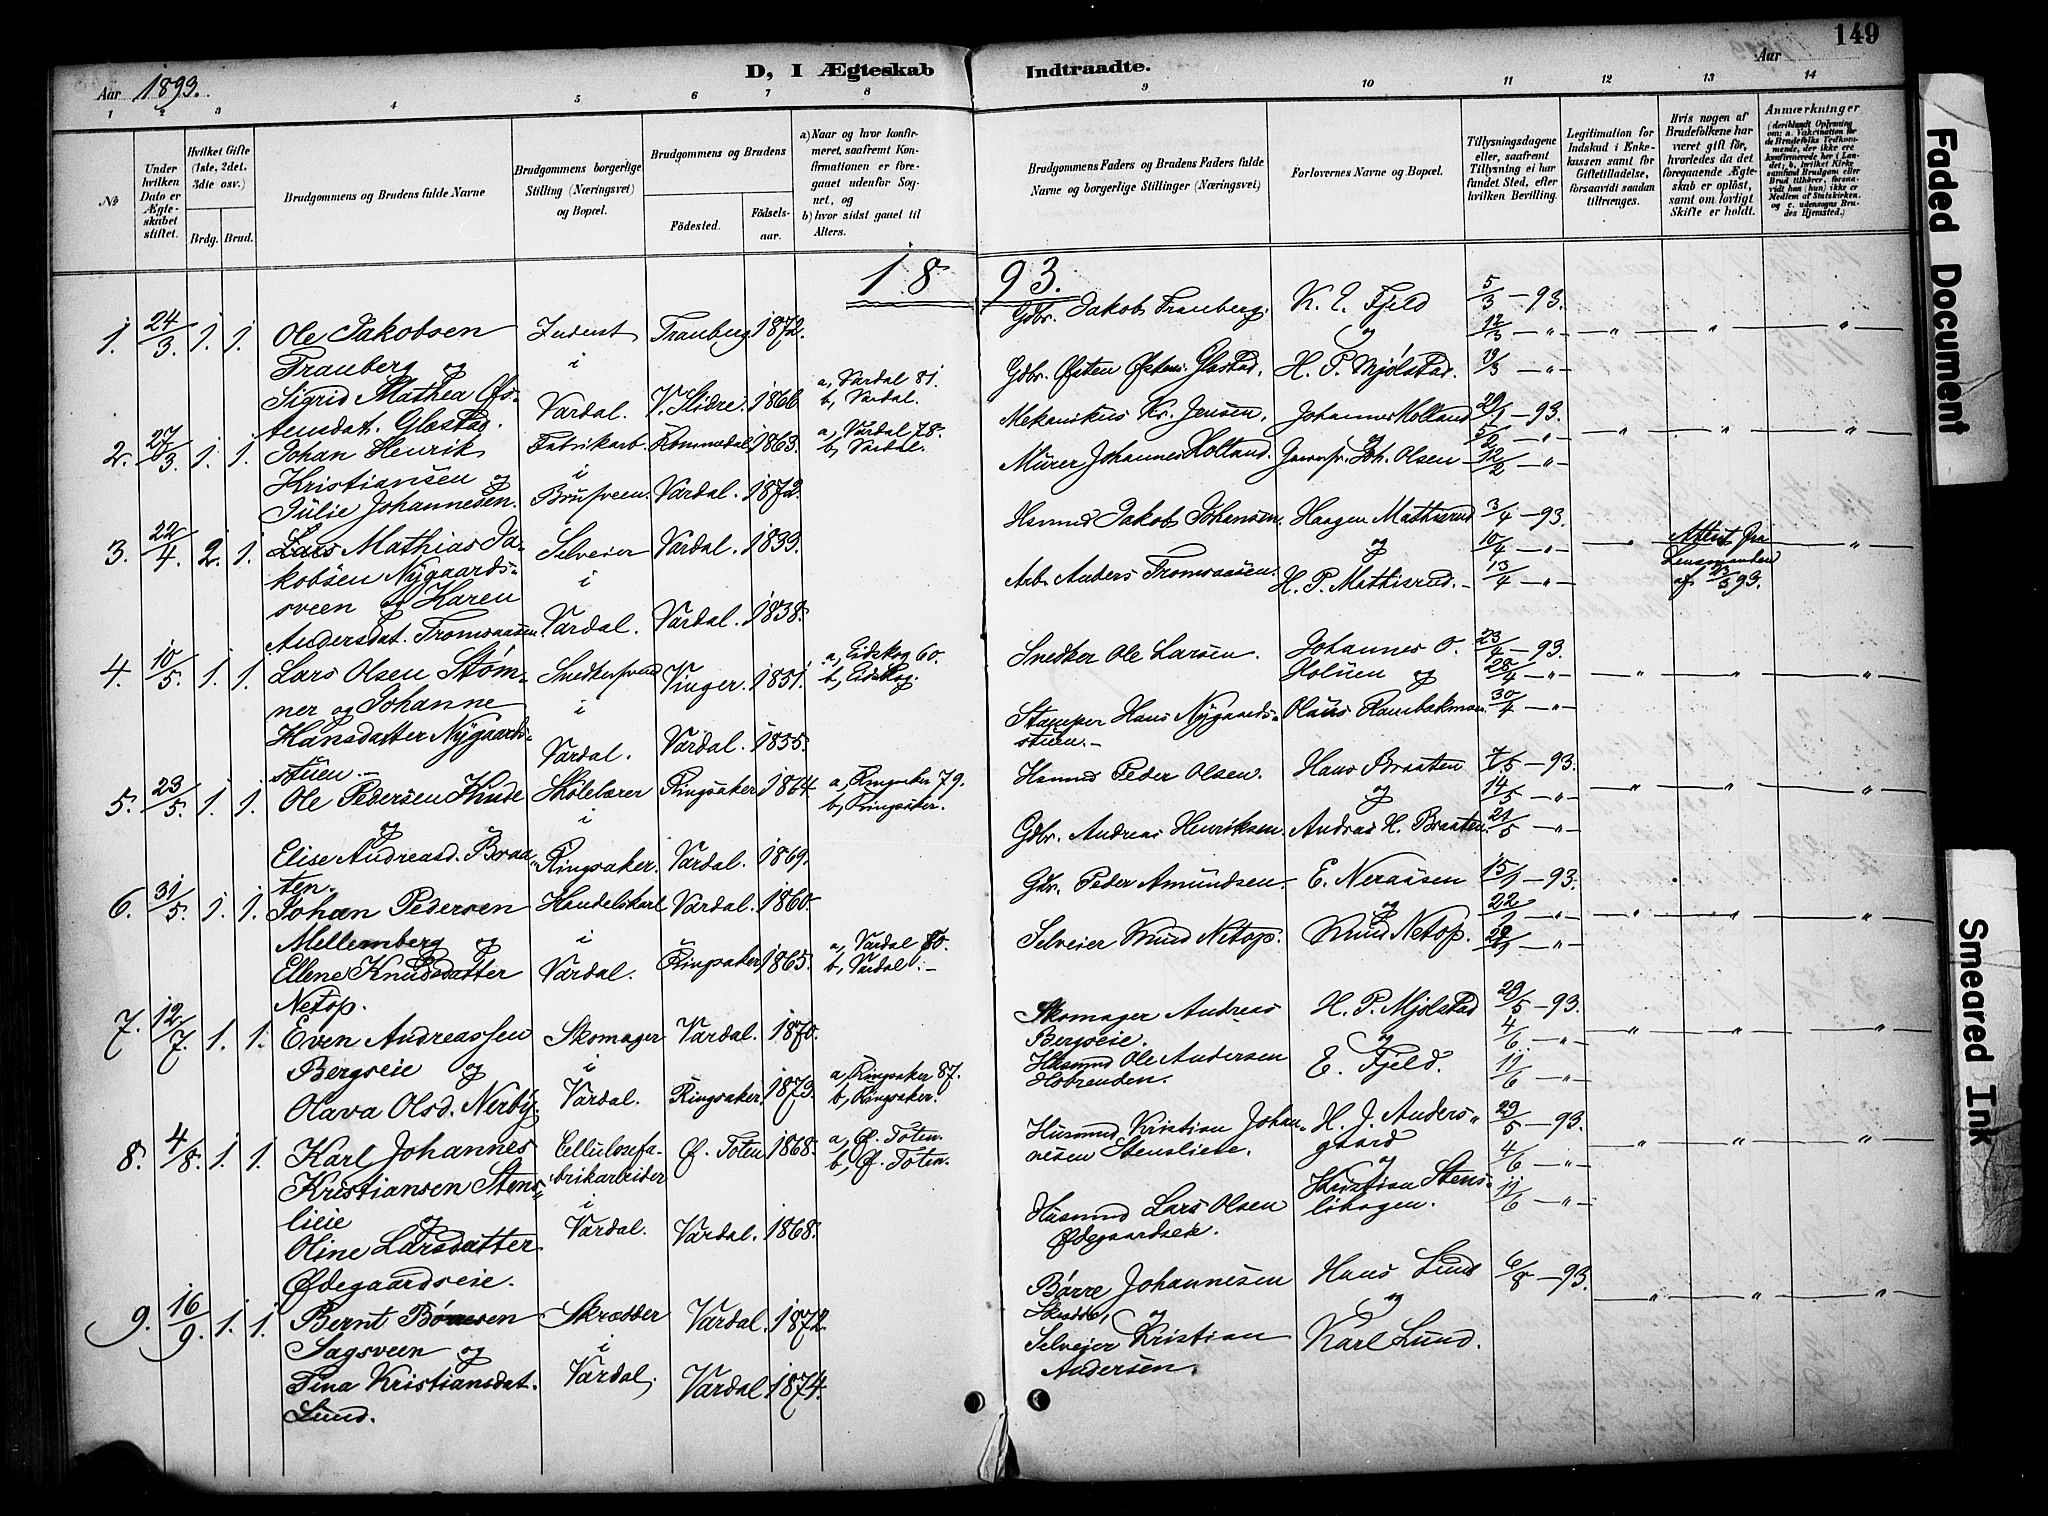 149
D, I Ægteskab Indtraadte.
Aar 1893. Aar
1 2 3 4 5 6 7 8 9 10 11 12 13 14
No
Under hvilken Dato er Ægteskabet stiftet.
Hvilket Gifte (1ste, 2det. 3die osv.)
Brdg. Brud.
Brudgommens og Brudens fulde Navne
Brudgommens borgerlige Stilling (Næringsvei) og Bopæl.
Brudgommens og Brudens
Födested.
Födselsaar.
a) Naar og hvor konfirmeret, saafremt Konfirmationen er foregaaet udenfor Sognet, og
b) hvor sidst gaaet til Alters.
Brudgommens Faders og Brudens Faders fulde Navne og borgerlige Stillinger (Næringsvei)
Forlovernes Navne og Bopæl.
Tillysningsdagene eller, saafremt Tillysning ei har fundet Sted, efter hvilken Bevilling.
Legitimation for Indskud i Enkekassen samt for Giftetilladelse, forsaavidt saadan tiltrænges.
Hvis nogen af Brudefolkene har været gift för, hvorledes da det foregaaende Ægteskab er oplöst, samt om lovligt Skifte er holdt.
Anmærkninger
1893.
1. 24/3. 1. 1. Ole Jakobsen Indent Tranberg 1872. Gdbr. Jakob Tranberg. K. E. Fjeld 5/3 - 93.
Tranberg og i og 12/3 - " -
Sigrid Mathea Øs- Vardal. V. Slidre. 1866 a, Vardal 81. Gdbr. Østen Østens. Glæstad. H. P. Mjølstad. 19/3 - " -
tensdat. Glæstad. b, Vardal.
2. 27/3. 1. 1. Johan Henrik Fabrikarb. Rommedal 1863. a, Vardal 78. Mekanikus Kr. Jensen. Johannes Holland 29/1 - 93.
Kristiansen og i b, Vardal. 5/2 - " -
Julie Johannesen. Brusveen. Vardal. 1872. Murer Johannes Holland. Joh. Olsen 12/2 - " -
3. 22/4. 2. 1. Lars Mathias Ja- Selveier Vardal. 1833. Hsmnd Jakob Johansen. Haagen Mathisrud 3/4 - 93. Attest fra
kobsen Nygaards- i og 10/4 - " - Lensmanden
sveen og Karen Vardal. Vardal. 1838. Arb. Anders Tromsaasen. H. P. Mathisrud. 13/4 - " - af 23/3 93.
Andersdat. Tromsaasen
4. 10/5. 1. 1. Lars Olsen Støm- Snedkersvend Vinger. 1851. a, Eidskog 60. Snedker Ole Larsen. Johannes O. 23/4 - 93.
ner og Johanne i b, Eidskog. Holuen og 28/4 - " -
Hansdatter Nygaards- Vardal. Vardal. 1855. Stamper Hans Nygaards- Olaus 30/4 - " -
stuen. stuen.
5. 23/5. 1. 1. Ole Pedersen Hinde Skolelærer Ringsaker 1864. a, Ringsaker 79. Hsmnd Peder Olsen. Hans Braaten 7/5 - 93.
og i b, Ringsaker. og 14/5 - " -
Elise Andreasd. Braa- Ringsaker. Vardal. 1869. Gdbr. Andreas Henriksen. Andreas H. Braaten. 21/5 - " -
ten.
6. 31/5. 1. 1. Johan Pedersen Handelskarl Vardal. 1860. Gdbr. Peder Amundsen. E. Neraasen 15/1 - 93.
Mellemberg og i og 22/1 - " -
Ellene Knudsdatter Vardal. Ringsaker 1865. a, Vardal 80. b, Vardal. Selveier Knud Netop. Knud Netop. 29/1 - " -
Netop.
7. 12/7. 1. 1. Even Andreassen Skomager Vardal. 1870. Skomager Andreas H. P. Mjølstad 29/5 - 93.
Bergseie og i Bergseie. og 4/6 - " -
Olava Olsd. Nerby. Vardal. Ringsaker. 1873. a, Ringsaker 87. b, Ringsaker. Husmnd Ole Andersen E. Fjeld. 11/6 - " -
8. 4/8. 1. 1. Karl Johannes Cellulosefa- Ø. Toten 1868. a, Ø. Toten. Husmnd Kristian Johan- H. J. Anders- 29/5 - 93.
Kristiansen Stens- brikarbeider b, Ø. Toten. nesen Stenslieie. gaard og 4/6 - " -
lieie og i
Oline Larsdatter Vardal. Vardal. 1868. Husmnd Lars Olsen Kristian Stens- 11/6 - " -
Ødegaardseie. Ødegaardseie. lihagen.
9. 16/9. 1. 1. Bernt Børresen Skrædder Vardal. 1872. Børre Johannesen Hans Lund 6/8 - 93.
Sagsveen og i Skrædder, og og
Tina Kristiansdat. Vardal. Vardal. 1874. Selveier Kristian Karl Lund.
Lund. Andersen.
Faded Document
Smeared Ink